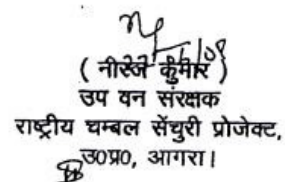 ( नीरज कुमार )
उप वन संरक्षक
राष्ट्रीय चम्बल सेंचुरी प्रोजेक्ट,
उ०प्र०, आगरा।